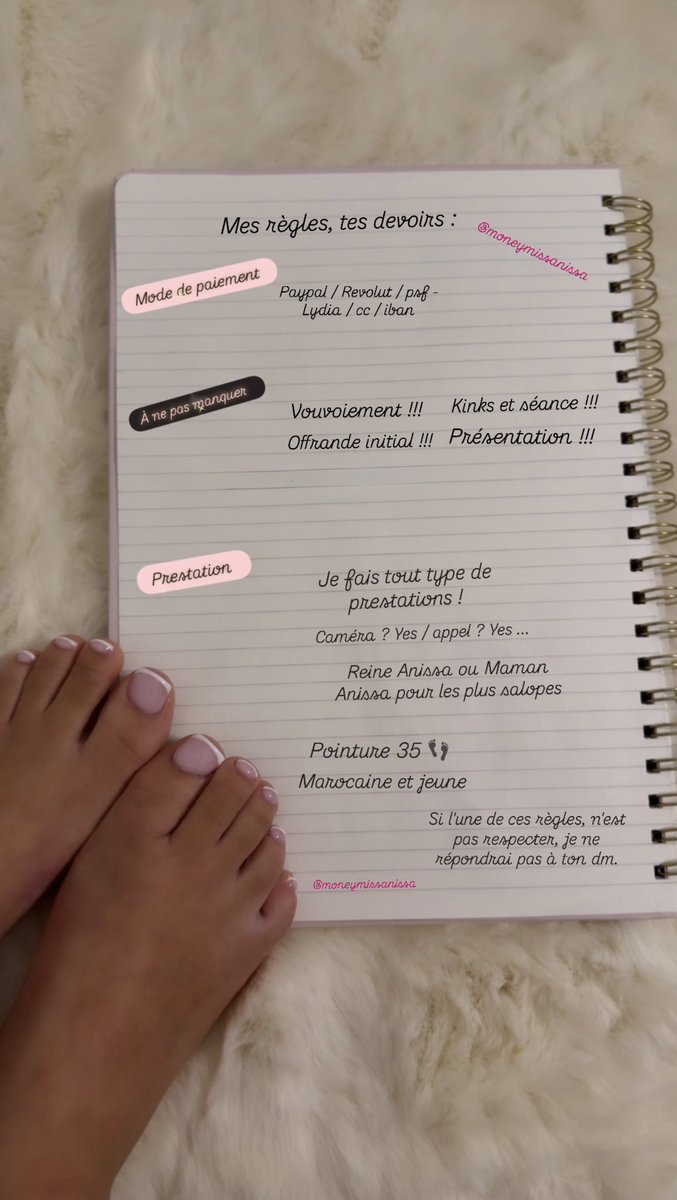 Mes règles, tes devoirs :
@moneymissanissa
Mode de paiement
Paypal / Revolut / psf -
Lydia / cc / iban
À ne pas manquer
Vouvoiement !!! Kinks et séance !!!
Offrande initial !!! Présentation !!!
Prestation
Je fais tout type de
prestations !
Caméra ? Yes / appel ? Yes ...
Reine Anissa ou Maman
Anissa pour les plus salopes
Pointure 35 👣
Marocaine et jeune
Si l'une de ces règles, n'est
pas respecter, je ne
répondrai pas à ton dm.
@moneymissanissa